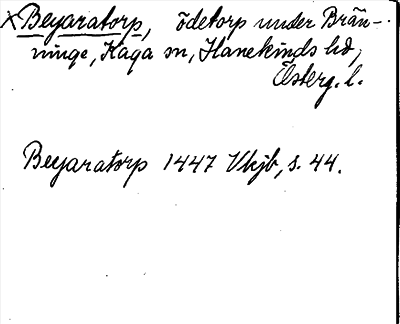 × Beyaratorp, ödetorp under Brän-
ninge, Kaga sn, Hanekinds hd,
Österg. l.
Beyaratorp 1447 Vkjb, s. 44.